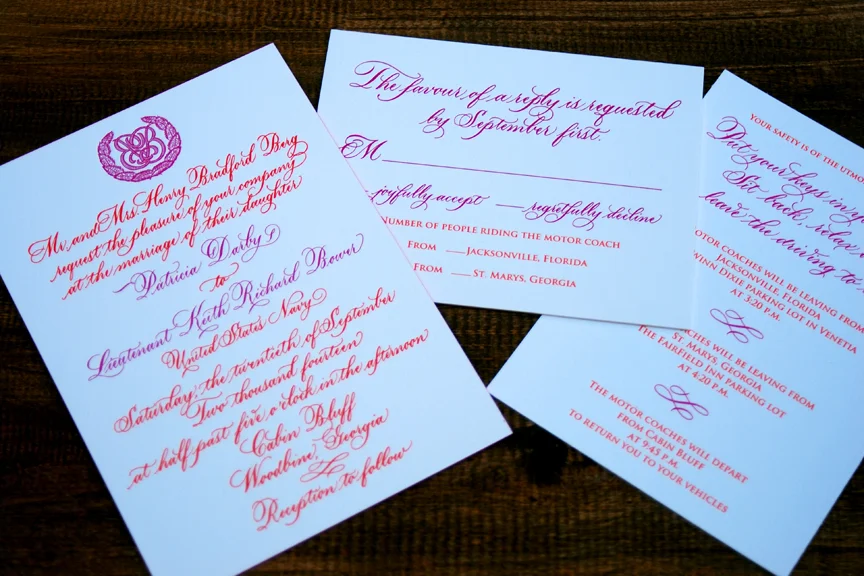 Mr. and Mrs. Henry Bradford Berg
request the pleasure of your company
at the marriage of their daughter
Patricia Darby
to
Lieutenant Keith Richard Bower
United States Navy
Saturday, the twentieth of September
Two thousand fourteen
at half past five o'clock in the afternoon
Cabin Bluff
Woodbine, Georgia
Reception to follow
The favour of a reply is requested
by September first.
M
joyfully accept regretfully decline
Number of people riding the motor coach
From Jacksonville, Florida
From St. Marys, Georgia
Your safety is of the utmo
Put your keys in y
Sit back, relax a
leave the driving to
otor coaches will be leaving from
Jacksonville, Florida
Winn Dixie parking lot in Venetia
at 3:20 p.m.
oaches will be leaving from
St. Marys, Georgia
The Fairfield Inn parking lot
at 4:20 p.m.
The motor coaches will depart
from Cabin Bluff
at 9:45 p.m.
to return you to your vehicles